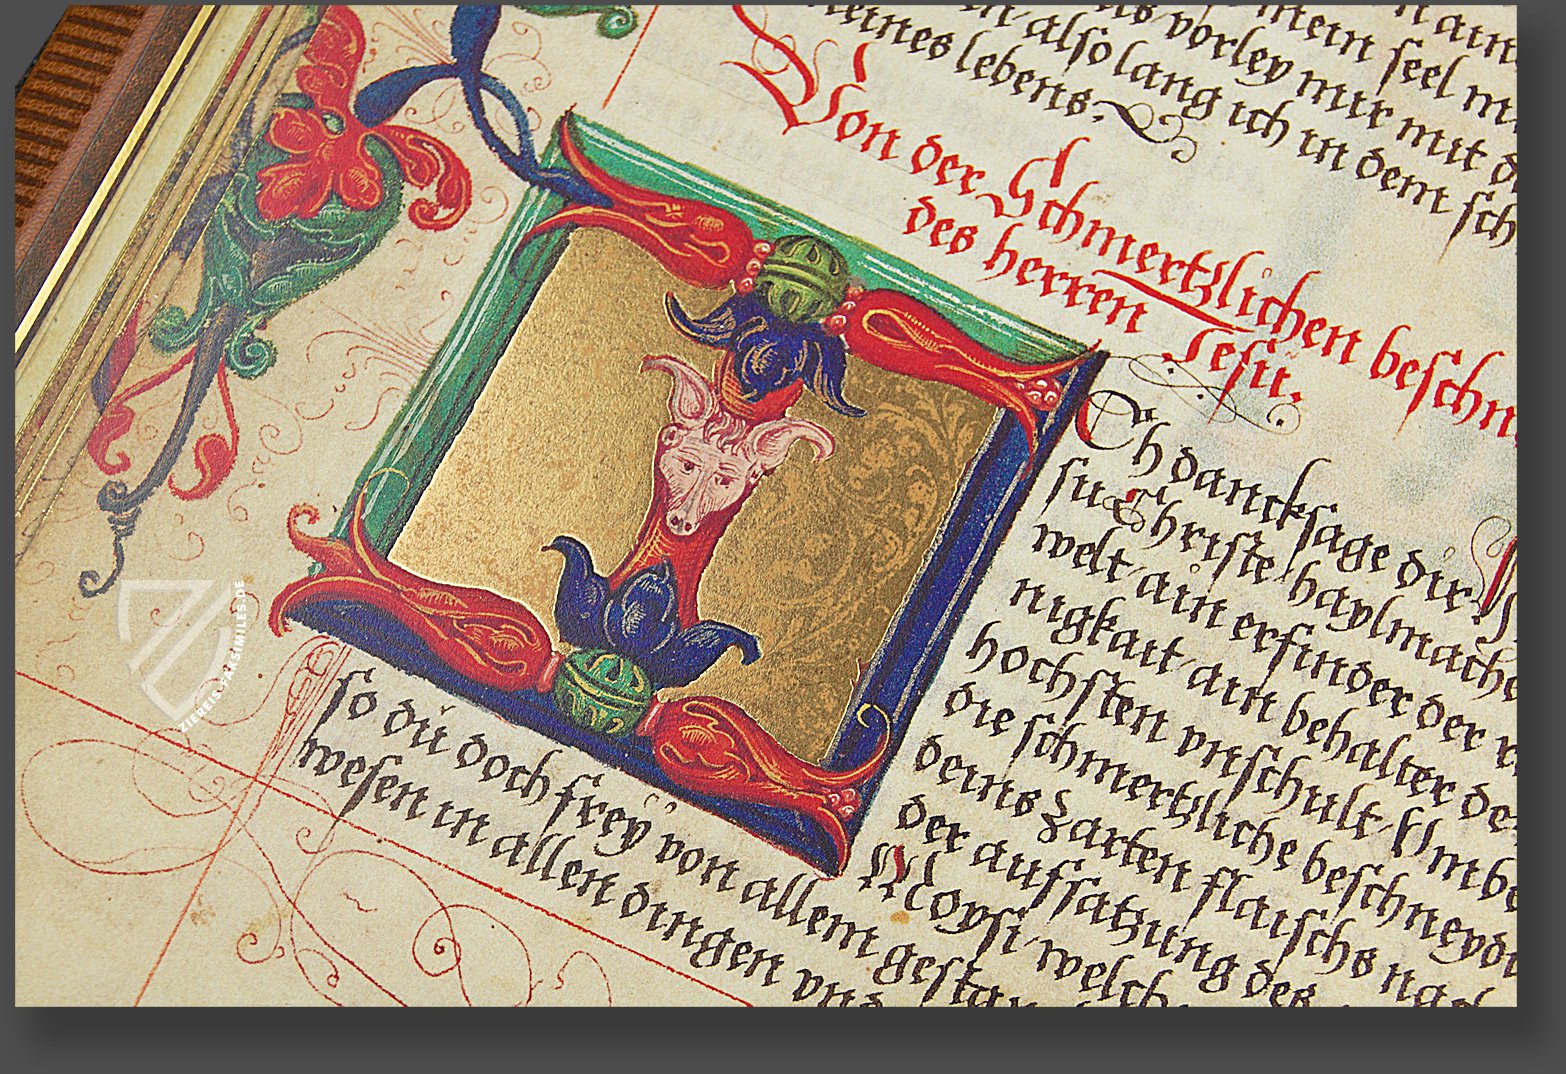 mein seel
vorley mir mit
in also lang ich in dem sch
meines lebens.
Von der Schmertzlichen beschn
des herren Jesu.
Ich dancksage dir
su Christe haylmache
welt ain erfinder der r
nigkait ain behalter de
hochsten vnschult Vmbe
die schmertzliche beschneyd
deins zarten flaischs nach
der aufsatzung des
Moysi welch
so du doch frey von allem gesta
wesen in allen dingen vnd
ZIEREIS-FAKSIMILES.DE